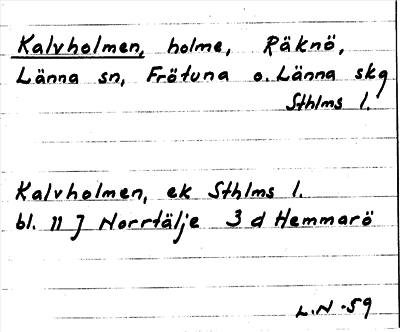 Kalvholmen, holme, Räknö,
Länna sn, Frötuna o. Länna skg
Sthlms l.
Kalvholmen, ek Sthlms l.
bl. 11 J Norrtälje 3 d Hemmarö
L.N -59